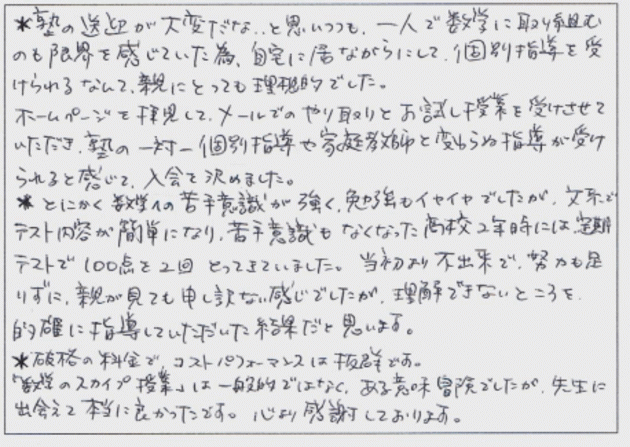 *塾の送迎が大変だな..と思いつつも、一人で数学に取り組む
のも限界を感じていた為、自宅に居ながらにして、個別指導を受
けられるなんて、親にとっても理想的でした。
ホームページを拝見して、メールでのやり取りとお試し授業を受けさせて
いただき、塾の一対一個別指導や家庭教師と変わらぬ指導が受け
られると感じて、入会を決めました。
*とにかく数学への苦手意識が強く、勉強もイヤイヤでしたが、文系で
テスト内容が簡単になり、苦手意識もなくなった高校2年時には、定期
テストで100点を2回とってきていました。当初より不出来で、努力も足
りずに、親が見ても申し訳ない感じでしたが、理解できないところを、
的確に指導していただいた結果だと思います。
*破格の料金で、コストパフォーマンスは抜群です。
「数学のスカイプ授業」は一般的ではなく、ある意味冒険でしたが、先生に
出会えて本当に良かったです。心より感謝しております。